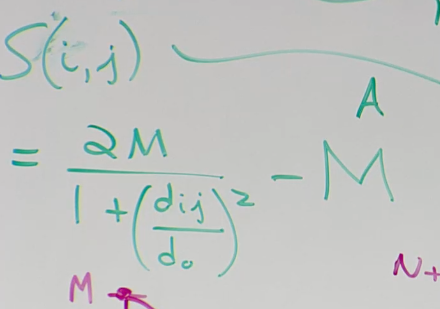 S(i,j)
A
= 2M / (1 + (dij/d₀)²) - M
M
N+